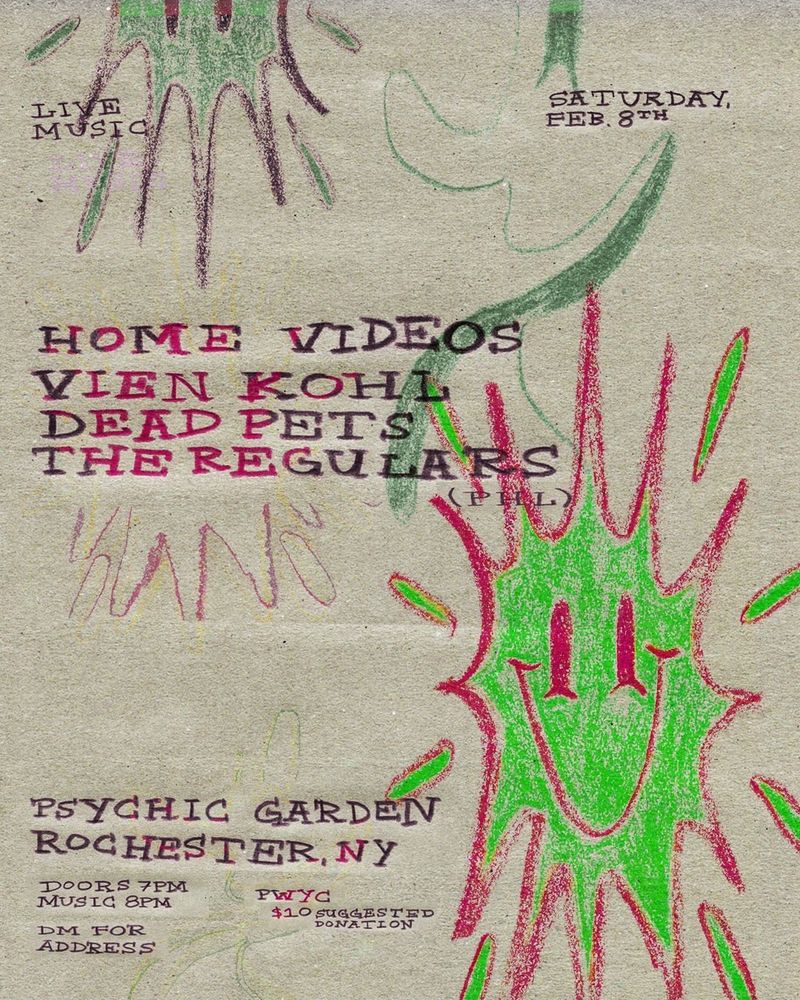 LIVE
MUSIC
SATURDAY,
FEB. 8TH
HOME VIDEOS
VIEN KOHL
DEAD PETS
THE REGULARS
(PHL)
PSYCHIC GARDEN
ROCHESTER, NY
DOORS 7PM
MUSIC 8PM
DM FOR
ADDRESS
PWYC
$10 SUGGESTED
DONATION